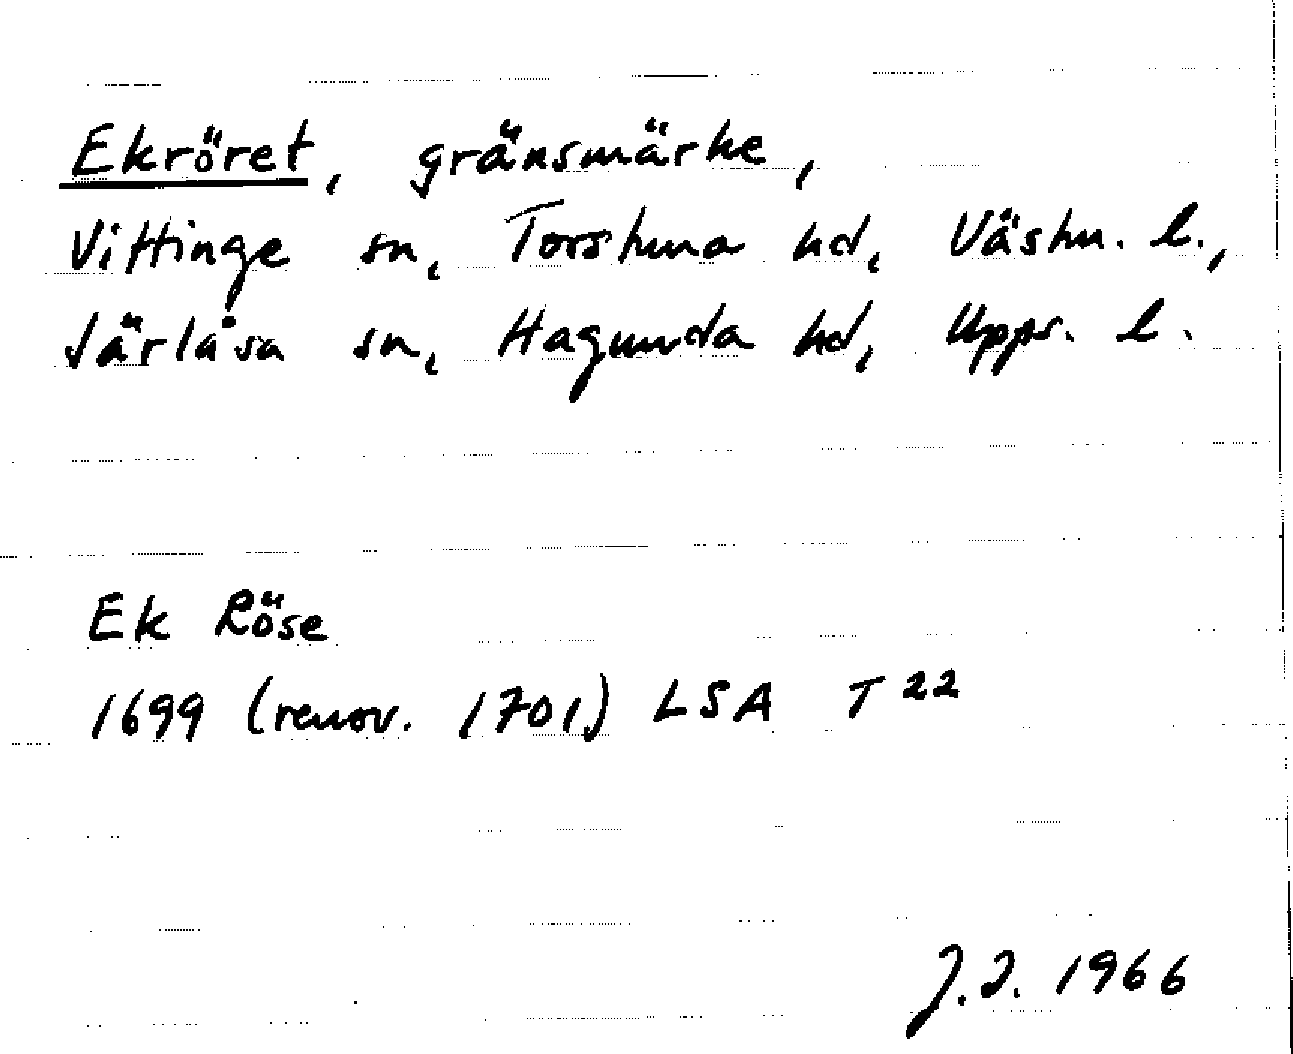 Ekröret, gränsmärke,
Vittinge sn, Torstuna hd, Västm. l.,
Järlåsa sn, Hagunda hd, Upps. l.
Ek Röse
1699 (renov. 1701) LSA T 22
J. J. 1966